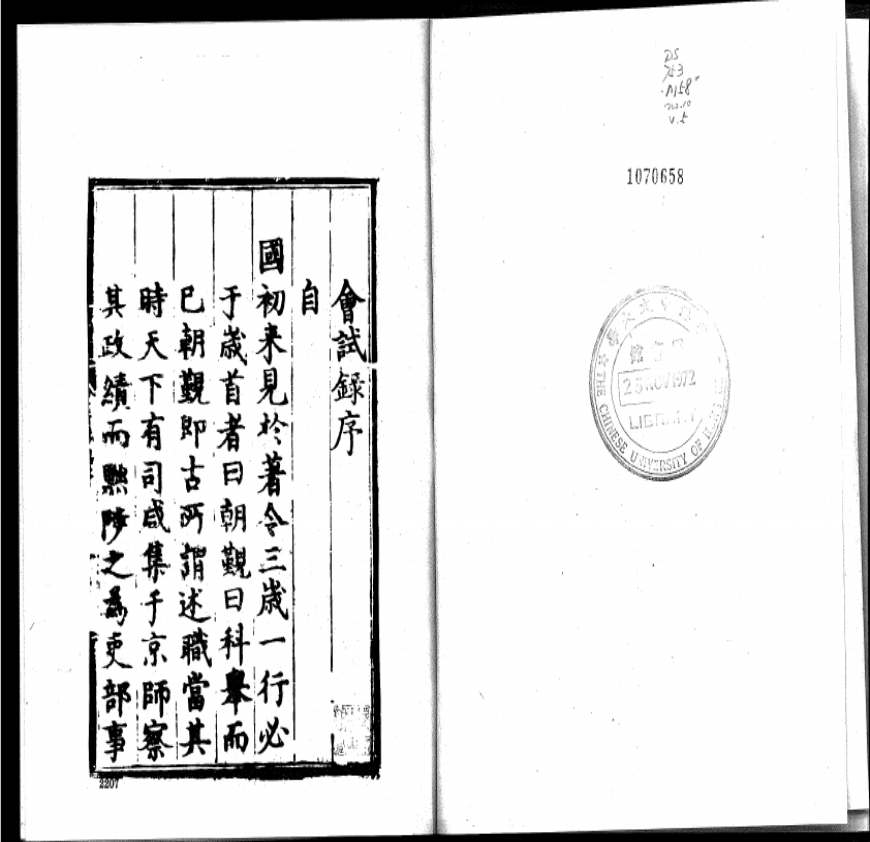 會試錄序
自
國初来見於著令三歲一行必
于歲首者曰朝覲曰科舉而
已朝覲即古所謂述職當其
時天下有司咸集于京師察
其政績而黜陟之為吏部事
2207
DS
753
.M58
v.5
1070658
25 NOV 1972
LIBRARY
THE CHINESE UNIVERSITY OF